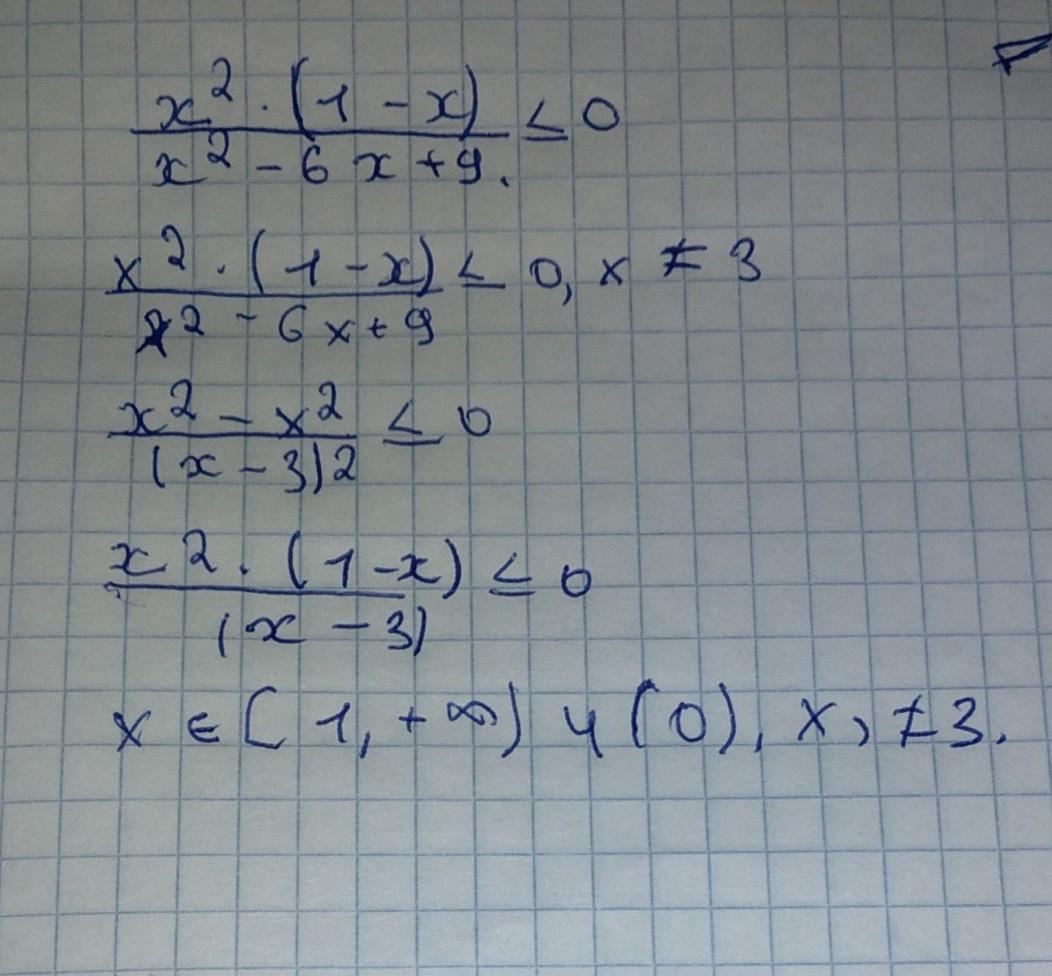 x² · (1 - x) / x² - 6x + 9. ≤ 0
x² · (1 - x) / x² - 6x + 9 ≤ 0, x ≠ 3
x² - x² / (x - 3)2 ≤ 0
x² · (1 - x) / (x - 3) ≤ 0
x ∈ [1, +∞) ч (0), x, ≠ 3.